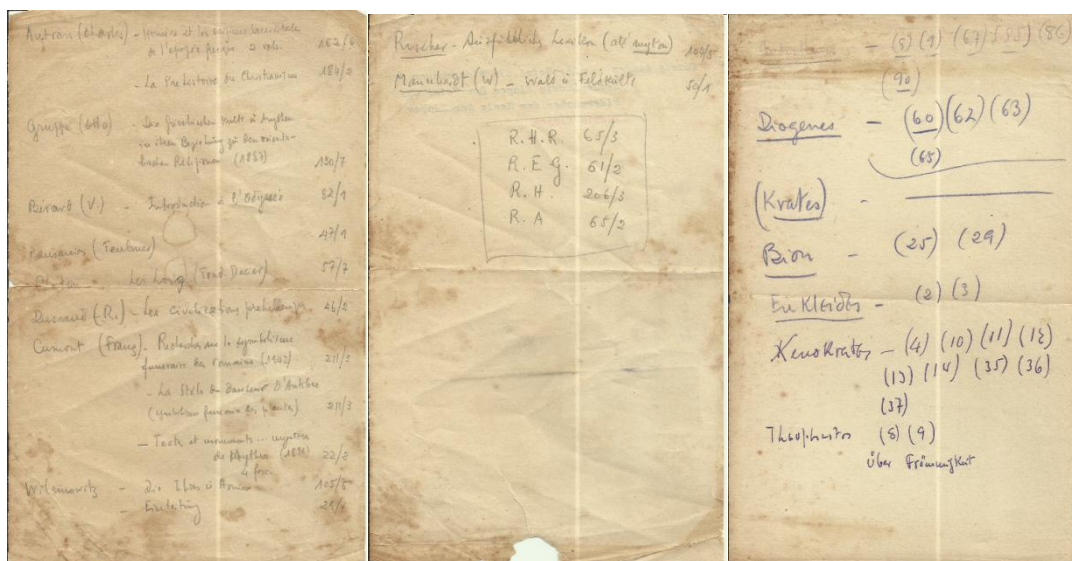 Autran (Charles) - Homère et les origines sacerdotales
de l'épopée grecque 3 vols. 182/6
- La Préhistoire du Christianisme 184/2
Gruppe (Otto) - Die griechischen Culte u. Mythen
in ihren Beziehung zu den orienta-
lischen Religionen (1887) 190/7
Bérard (V.) - Introduction à l'Odyssée 82/1
Pausanias (Teubner) 47/1
Platon Les Lois 57/7
Dussaud (R.) - Les civilisations préhelléniques 46/2
Cumont (Franz). Recherches sur le symbolisme
funéraire des romains (1942) 211/3
- La Stèle du danseur d'Antibes
211/3
- Texte et monuments ... mystères
de Mythra 22/2
4 fasc.
Wilamowitz - Die Ilias u. Homer 105/5
- Einleitung
Roscher - Ausführliches Lexikon (até myton) 104/5
Mannhardt (W) - Wald u. Feldkulte 50/1
R.H.R. 65/3
R.E.G. 61/2
R.H. 206/3
R.A 65/2
- (8) (9) (67) (85) (86)
(90)
Diogenes - (60) (62) (63)
(65)
(Krates) -
Bion - (25) (29)
Eukleides - (2) (3)
Xenokrates - (4) (10) (11) (12)
(13) (14) (35) (36)
(37)
Theophrastos (8) (9)
über Frömmigkeit